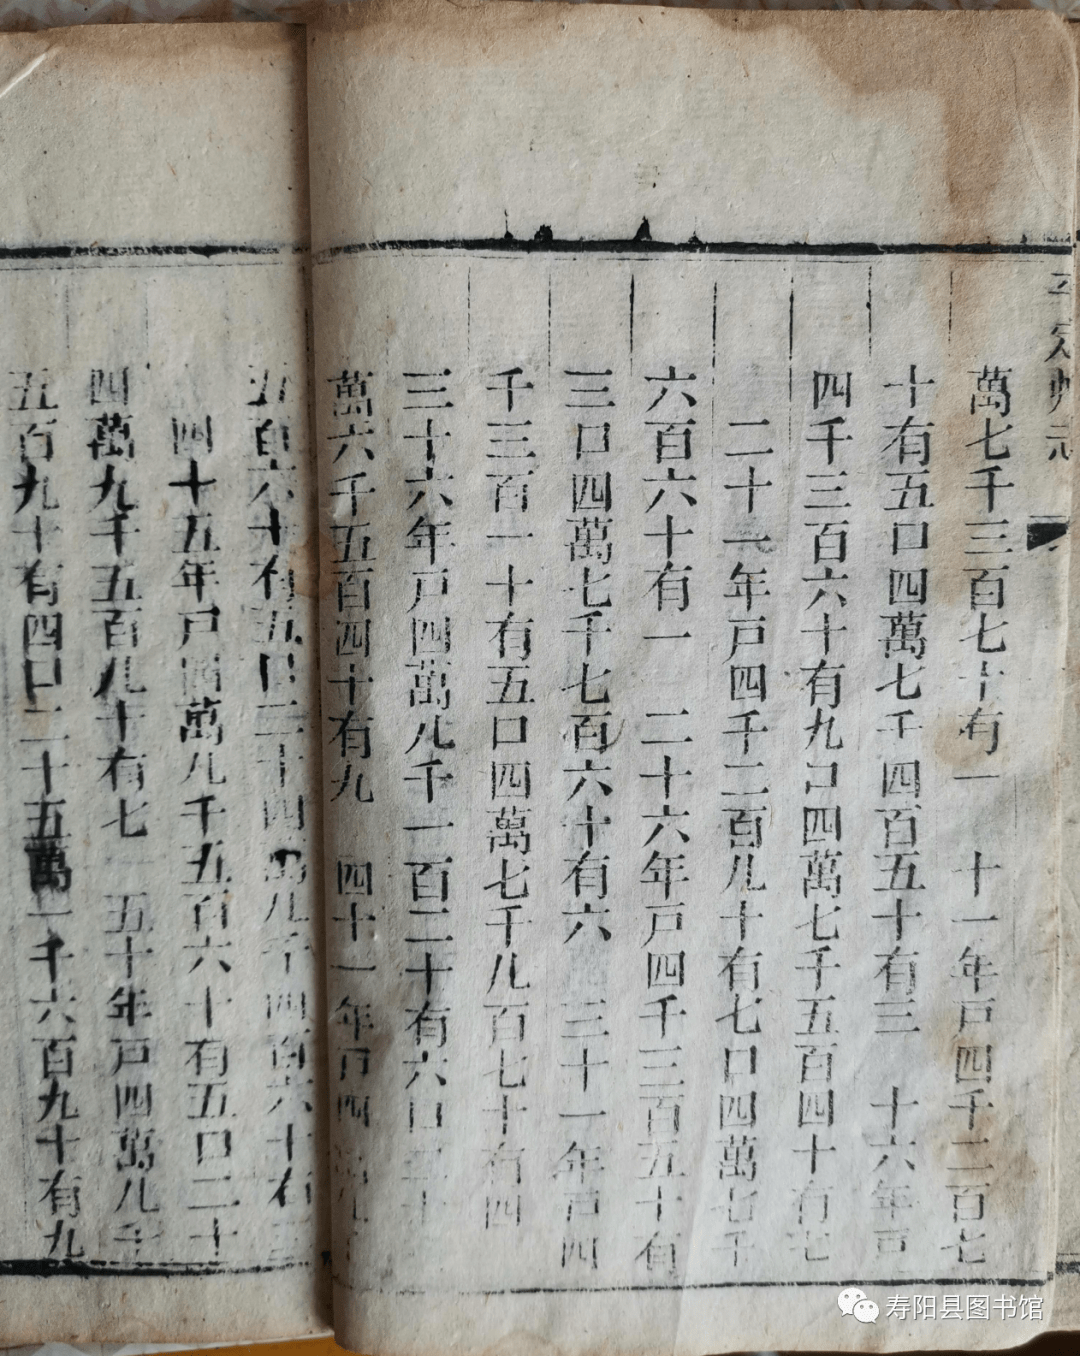 平定州志
萬七千三百七十有一 十一年戸四千二百七
十有五口四萬七千四百五十有三 十六年戸
四千三百六十有九口四萬七千五百四十有七
二十一年戸四千二百八十有七口四萬七千
六百六十有一 二十六年戸四千三百五十有
三口四萬七千七百六十有六 三十一年戸四
千三百一十有五口四萬七千八百七十有四
三十六年戸四萬八千一百二十有六口二十
萬六千五百四十有九 四十一年戸四萬八千
五百六十有五口二十四萬八千四百六十有三
四十五年戸四萬八千五百六十有五口二十
四萬九千五百八十有七 五十年戸四萬八千
五百九十有四口二十五萬一千六百九十有九
寿阳县图书馆